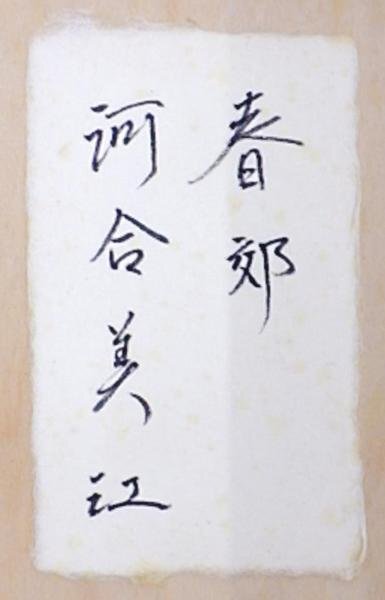 春郊
河合美江